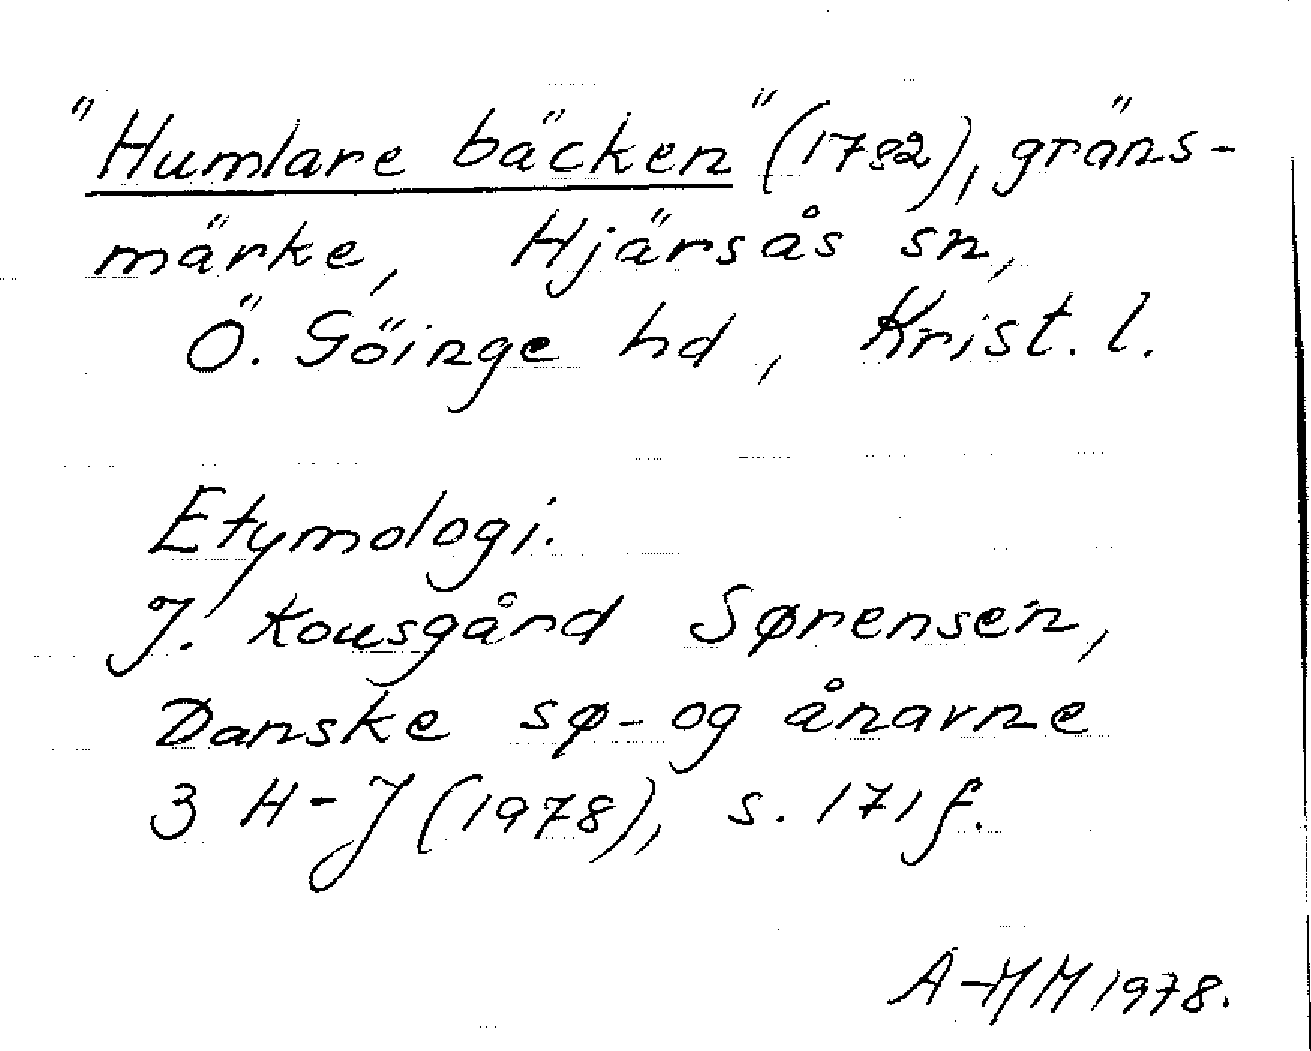 "Humlare bäcken" (1782), gräns-
märke, Hjärsås sn,
Ö. Göinge hd, Krist. l.
Etymologi.
J. Kousgård Sørensen,
Danske sø- og ånavne
3 H-J (1978), s. 171 f.
A-MM 1978.